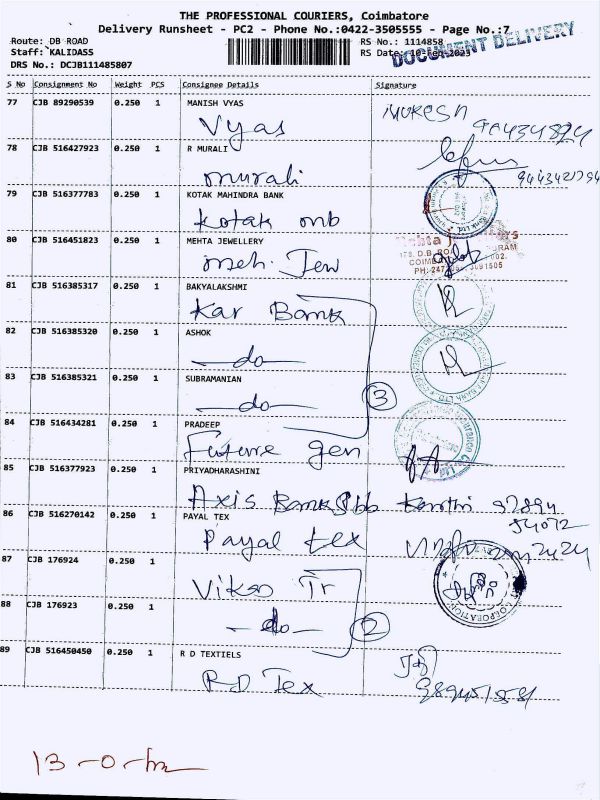 THE PROFESSIONAL COURIERS, Coimbatore
Delivery Runsheet - PC2 - Phone No.:0422-3505555 - Page No.:7
Route: DB ROAD
Staff: KALIDASS
DRS No.: DCJB111485807
RS No.: 1114858
RS Date: 10-Feb-2023
DOCUMENT DELIVERY
S No Consignment No Weight PCS Consignee Details Signature
77 CJB 89290539 0.250 1 MANISH VYAS
Vyas
MUKESH
78 CJB 516427923 0.250 1 R MURALI
murali
79 CJB 516377783 0.250 1 KOTAK MAHINDRA BANK
Kotak mb
80 CJB 516451823 0.250 1 MEHTA JEWELLERY
meh. Jew
81 CJB 516385317 0.250 1 BAKYALAKSHMI
Kar Bank
82 CJB 516385320 0.250 1 ASHOK
—do—
83 CJB 516385321 0.250 1 SUBRAMANIAN
—do—
3
84 CJB 516434281 0.250 1 PRADEEP
Future gen
85 CJB 516377923 0.250 1 PRIYADHARASHINI
Axis Bank
86 CJB 516270142 0.250 1 PAYAL TEX
Payal tex
87 CJB 176924 0.250 1
Vikas Tr
88 CJB 176923 0.250 1
—do—
2
89 CJB 516450450 0.250 1 R D TEXTIELS
RD Tex
13-0-